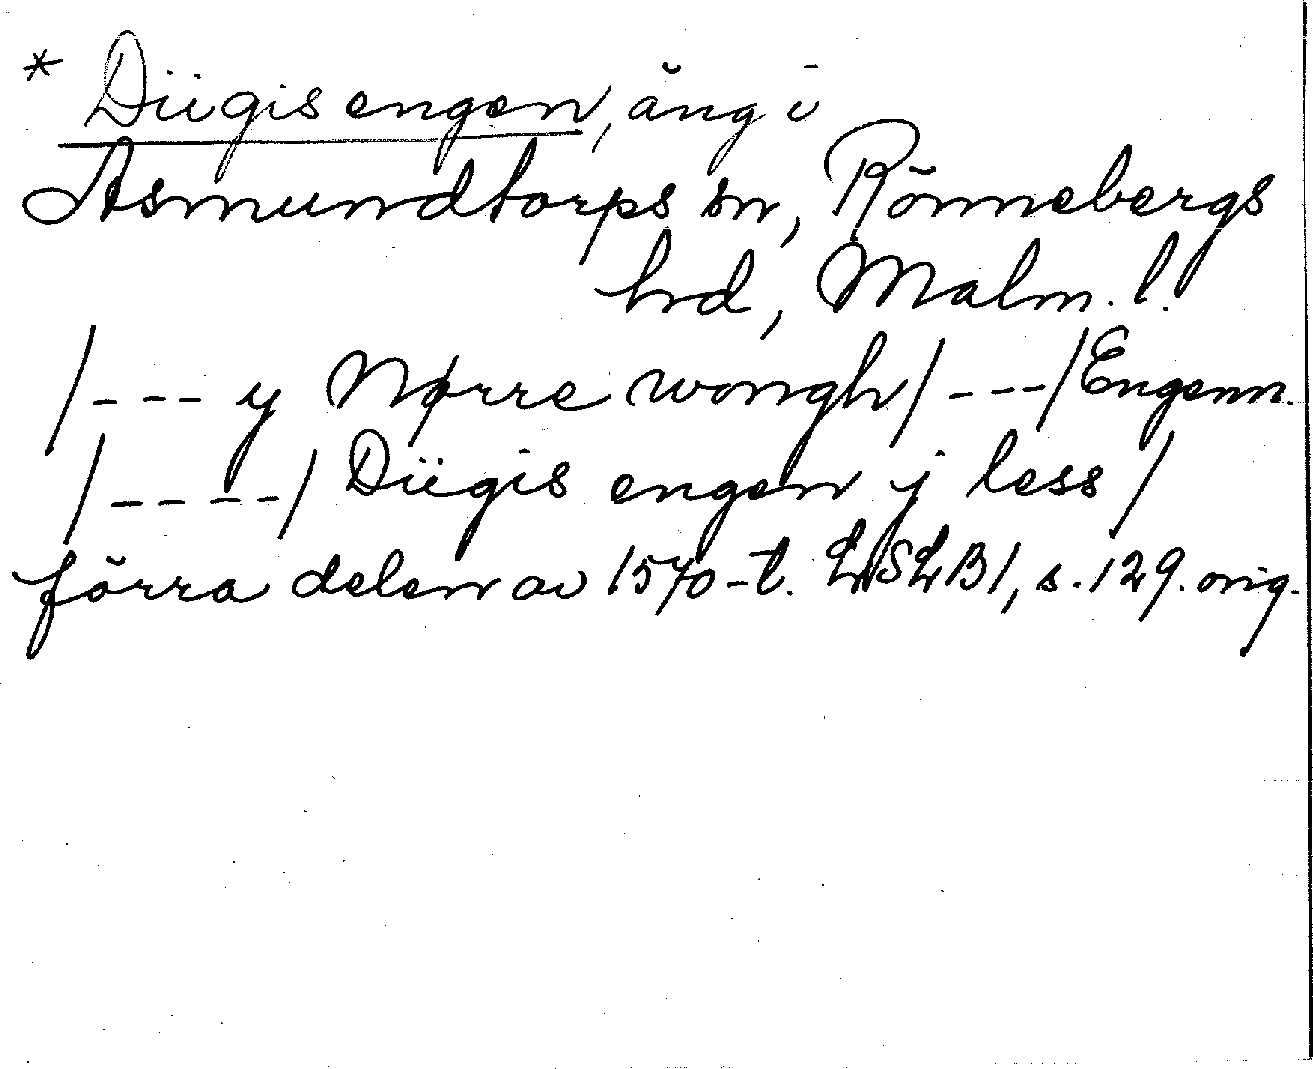 * Dügis engen, äng i
Asmundtorps sn, Rönnebergs
hrd, Malm. l.
/--- y Nørre wongh/---/Engenn.
/----/ Dügis engen j less/
förra delen av 1570-t. LSLB1, s. 129. orig.